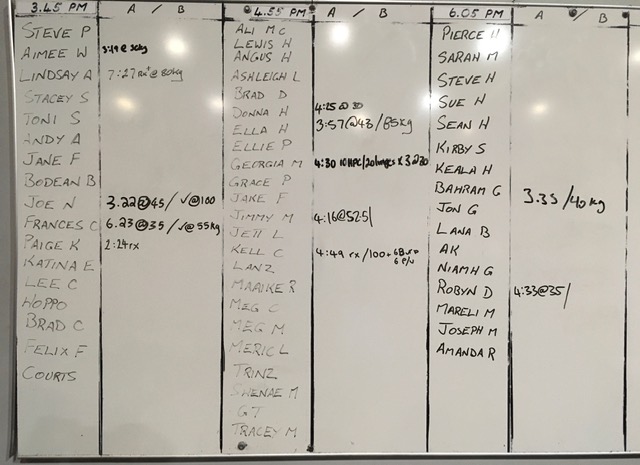 3.45 PM A / B
STEVE P
AIMEE W
LINDSAY A 7:27 rx @ 80kg
STACEY S
TONI S
ANDY A
JANE F
BODEAN B
JOE N 3.22@45/ √@100
FRANCES C 6.23@35 /√@55kg
PAIGE K 2:24rx
KATINA E
LEE C
HOPPO
BRAD C
FELIX F
COURTS
4.55 PM A / B
ALI MC
LEWIS H
ANGUS H
ASHLEIGH L
BRAD D
DONNA H 4:25 @ 30
ELLA H 3:57@43/85kg
ELLIE P
GEORGIA M 4:30 10 HPC/20lunges x 3 @30
GRACE P
JAKE F
JIMMY M 4:16@52.5/
JETT L
KELL C 4:49 rx /100+
LANZ
MAAIKE R
MEG C
MEG M
MERIC L
TRINZ
SWENAE M
GT
TRACEY M
6.05 PM A / B
PIERCE H
SARAH M
STEVE H
SUE H
SEAN H
KIRBY S
KEALA H
BAHRAM G 3.35 /40kg
JON G
LANA B
AK
NIAMH G
ROBYN D 4:33@35/
MARELI M
JOSEPH M
AMANDA R